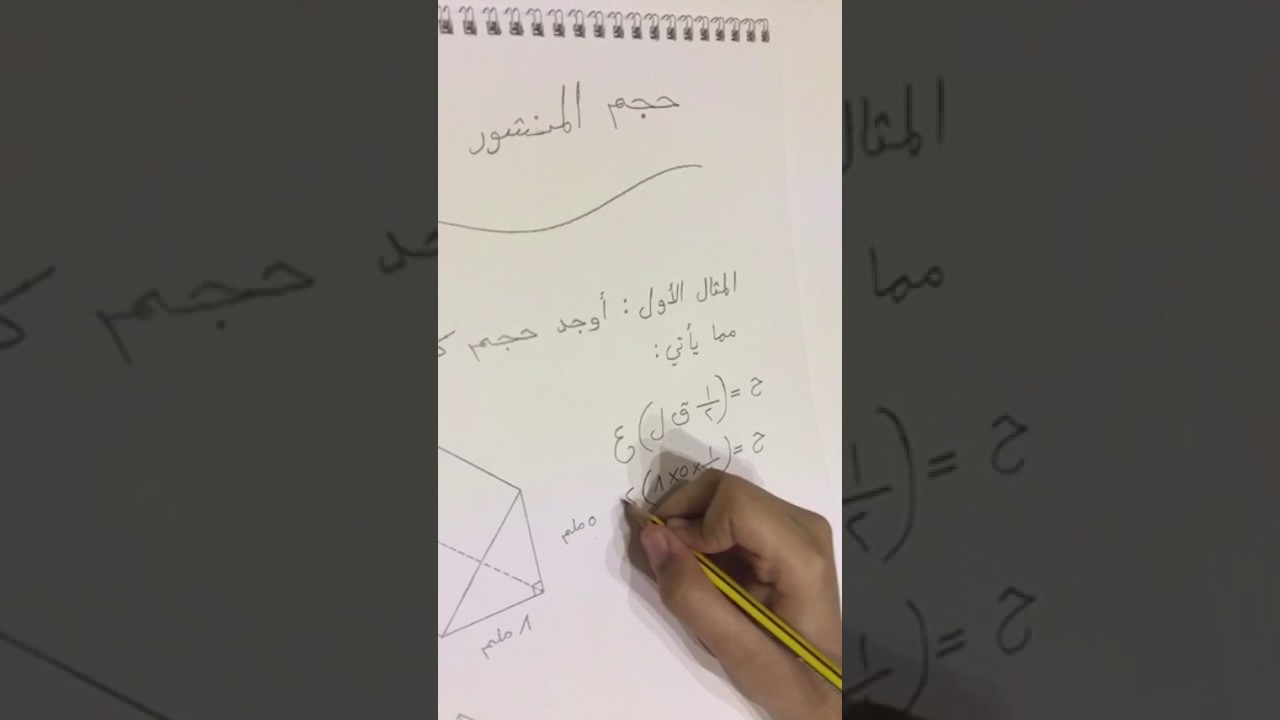 حجم المنشور
المثال الأول : أوجد حجم
مما يأتي :
ح = (١/٢ ق ل) ع
ح = (١/٢ × ٥ × ٨)
٥ ملم
٨ ملم